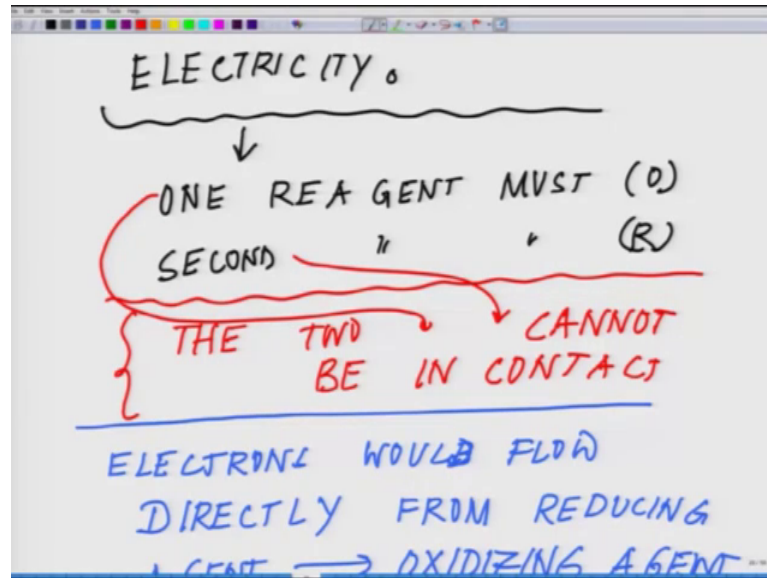 ELECTRICITY.
ONE REAGENT MUST (O)
SECOND " " (R)
THE TWO CANNOT
BE IN CONTACT
ELECTRONS WOULD FLOW
DIRECTLY FROM REDUCING
AGENT → OXIDIZING AGENT